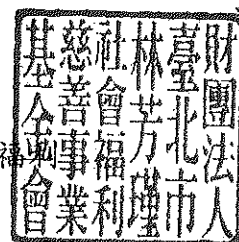 財團法人
臺北市
林芳瑾
社會福利
慈善事業
基金會
福